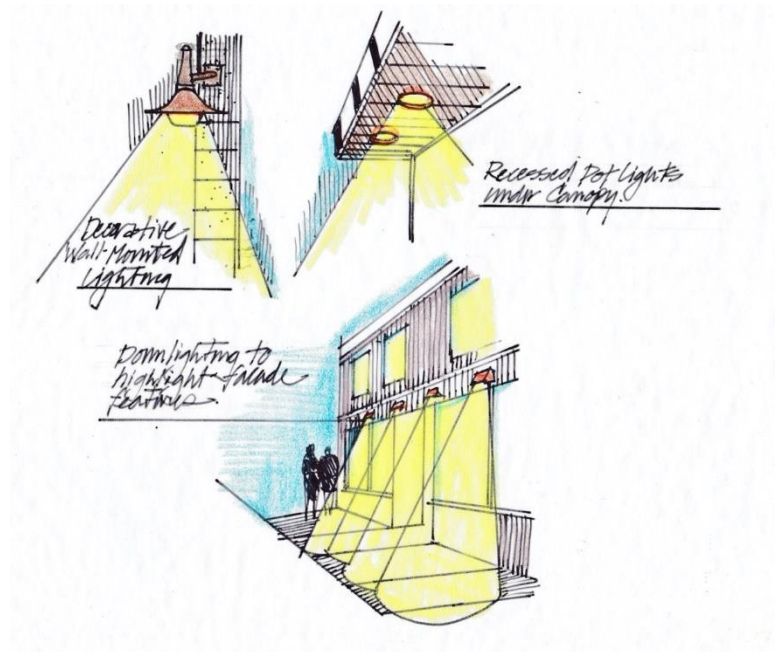 Decorative
Wall-Mounted
Lighting
Recessed Pot Lights
under Canopy.
Downlighting to
highlight facade
features.